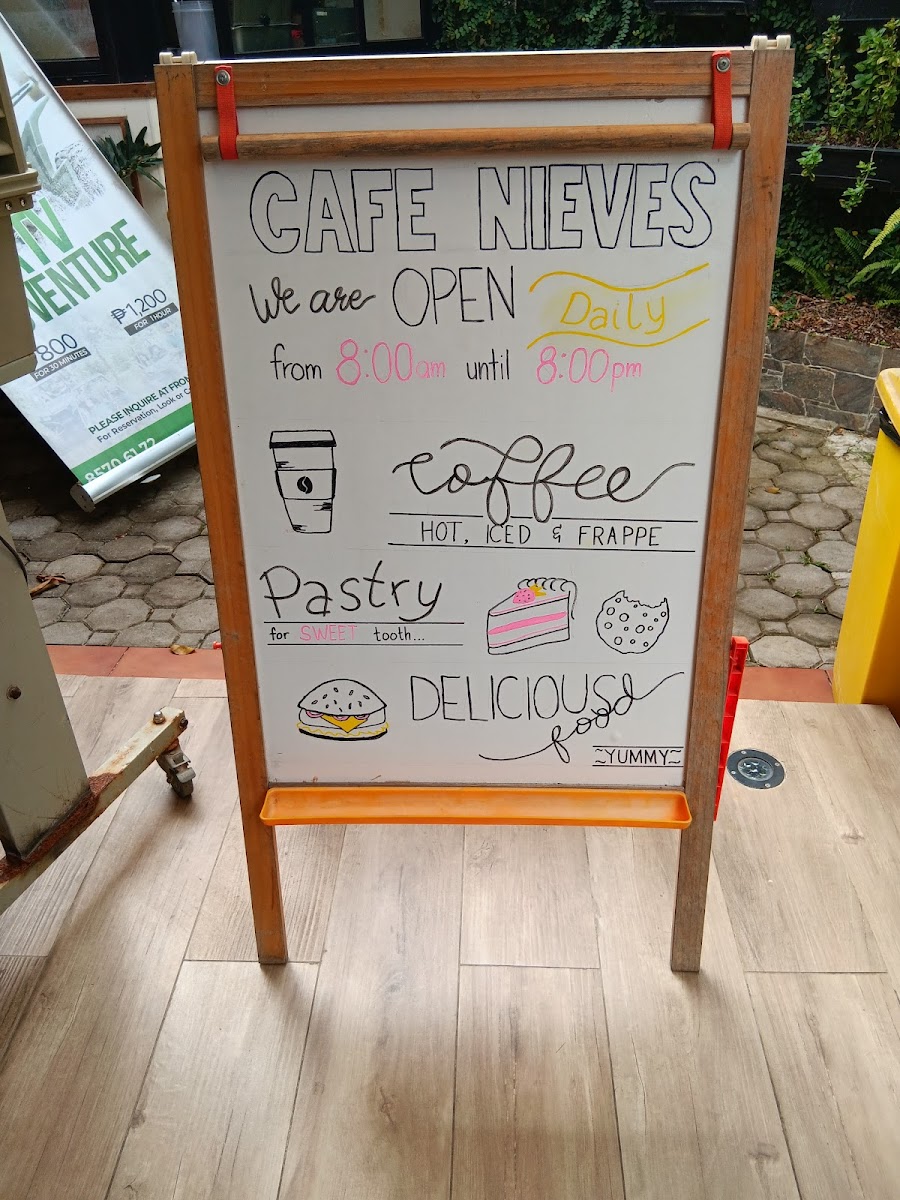 CAFE NIEVES
We are OPEN Daily
from 8:00am until 8:00pm
coffee
HOT, ICED & FRAPPE
Pastry
for SWEET tooth...
DELICIOUS food
~YUMMY~
VENTURE
₱1,200
FOR 1 HOUR
800
FOR 30 MINUTES
PLEASE INQUIRE AT
For Reservation, Look or